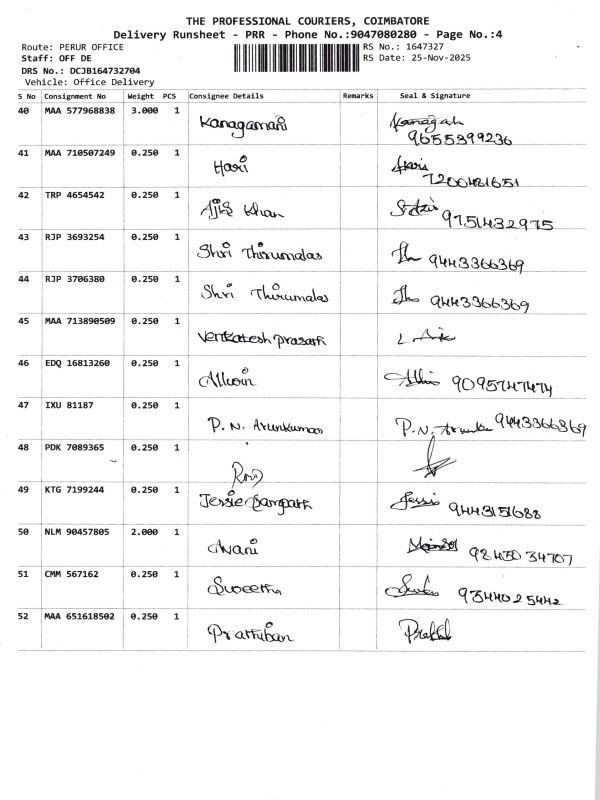 THE PROFESSIONAL COURIERS, COIMBATORE
Delivery Runsheet - PRR - Phone No.:9047080280 - Page No.:4
Route: PERUR OFFICE RS No.: 1647327
Staff: OFF DE RS Date: 25-Nov-2025
DRS No.: DCJB164732704
Vehicle: Office Delivery
S No Consignment No Weight PCS Consignee Details Remarks Seal & Signature
40 MAA 577968838 3.000 1 Kanagamani Kanagah
9655399236
41 MAA 710507249 0.250 1 Hari Hari
7200421651
42 TRP 4654542 0.250 1 Khan 9751432975
43 RJP 3693254 0.250 1 Shri Thirumalas 9443366369
44 RJP 3706380 0.250 1 Shri Thirumalas 9443366369
45 MAA 713890509 0.250 1 Venkatesh prasath
46 EDQ 16813260 0.250 1 Allwin 9095747474
47 IXU 81187 0.250 1 P. N. Arunkumar P. N. 9443366369
48 PDK 7089365 0.250 1 Ravi
49 KTG 7199244 0.250 1 Jessie Sampath 9443151688
50 NLM 90457805 2.000 1 Mani 98430 34707
51 CMM 567162 0.250 1 Swetha 9344025442
52 MAA 651618502 0.250 1 Prathiban